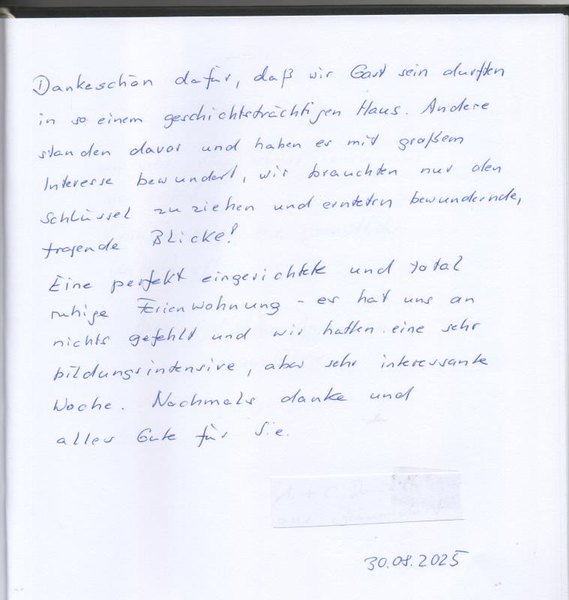 Dankeschön dafür, daß wir Gast sein durften
in so einem geschichtsträchtigen Haus. Andere
standen davor und haben es mit großem
Interesse bewundert, wir brauchten nur den
Schlüssel zu ziehen und ernteten bewundernde,
fragende Blicke!
Eine perfekt eingerichtete und total
ruhige Ferienwohnung - es hat uns an
nichts gefehlt und wir hatten eine sehr
bildungsintensive, aber sehr interessante
Woche. Nochmals danke und
alles Gute für Sie.
30.08.2025